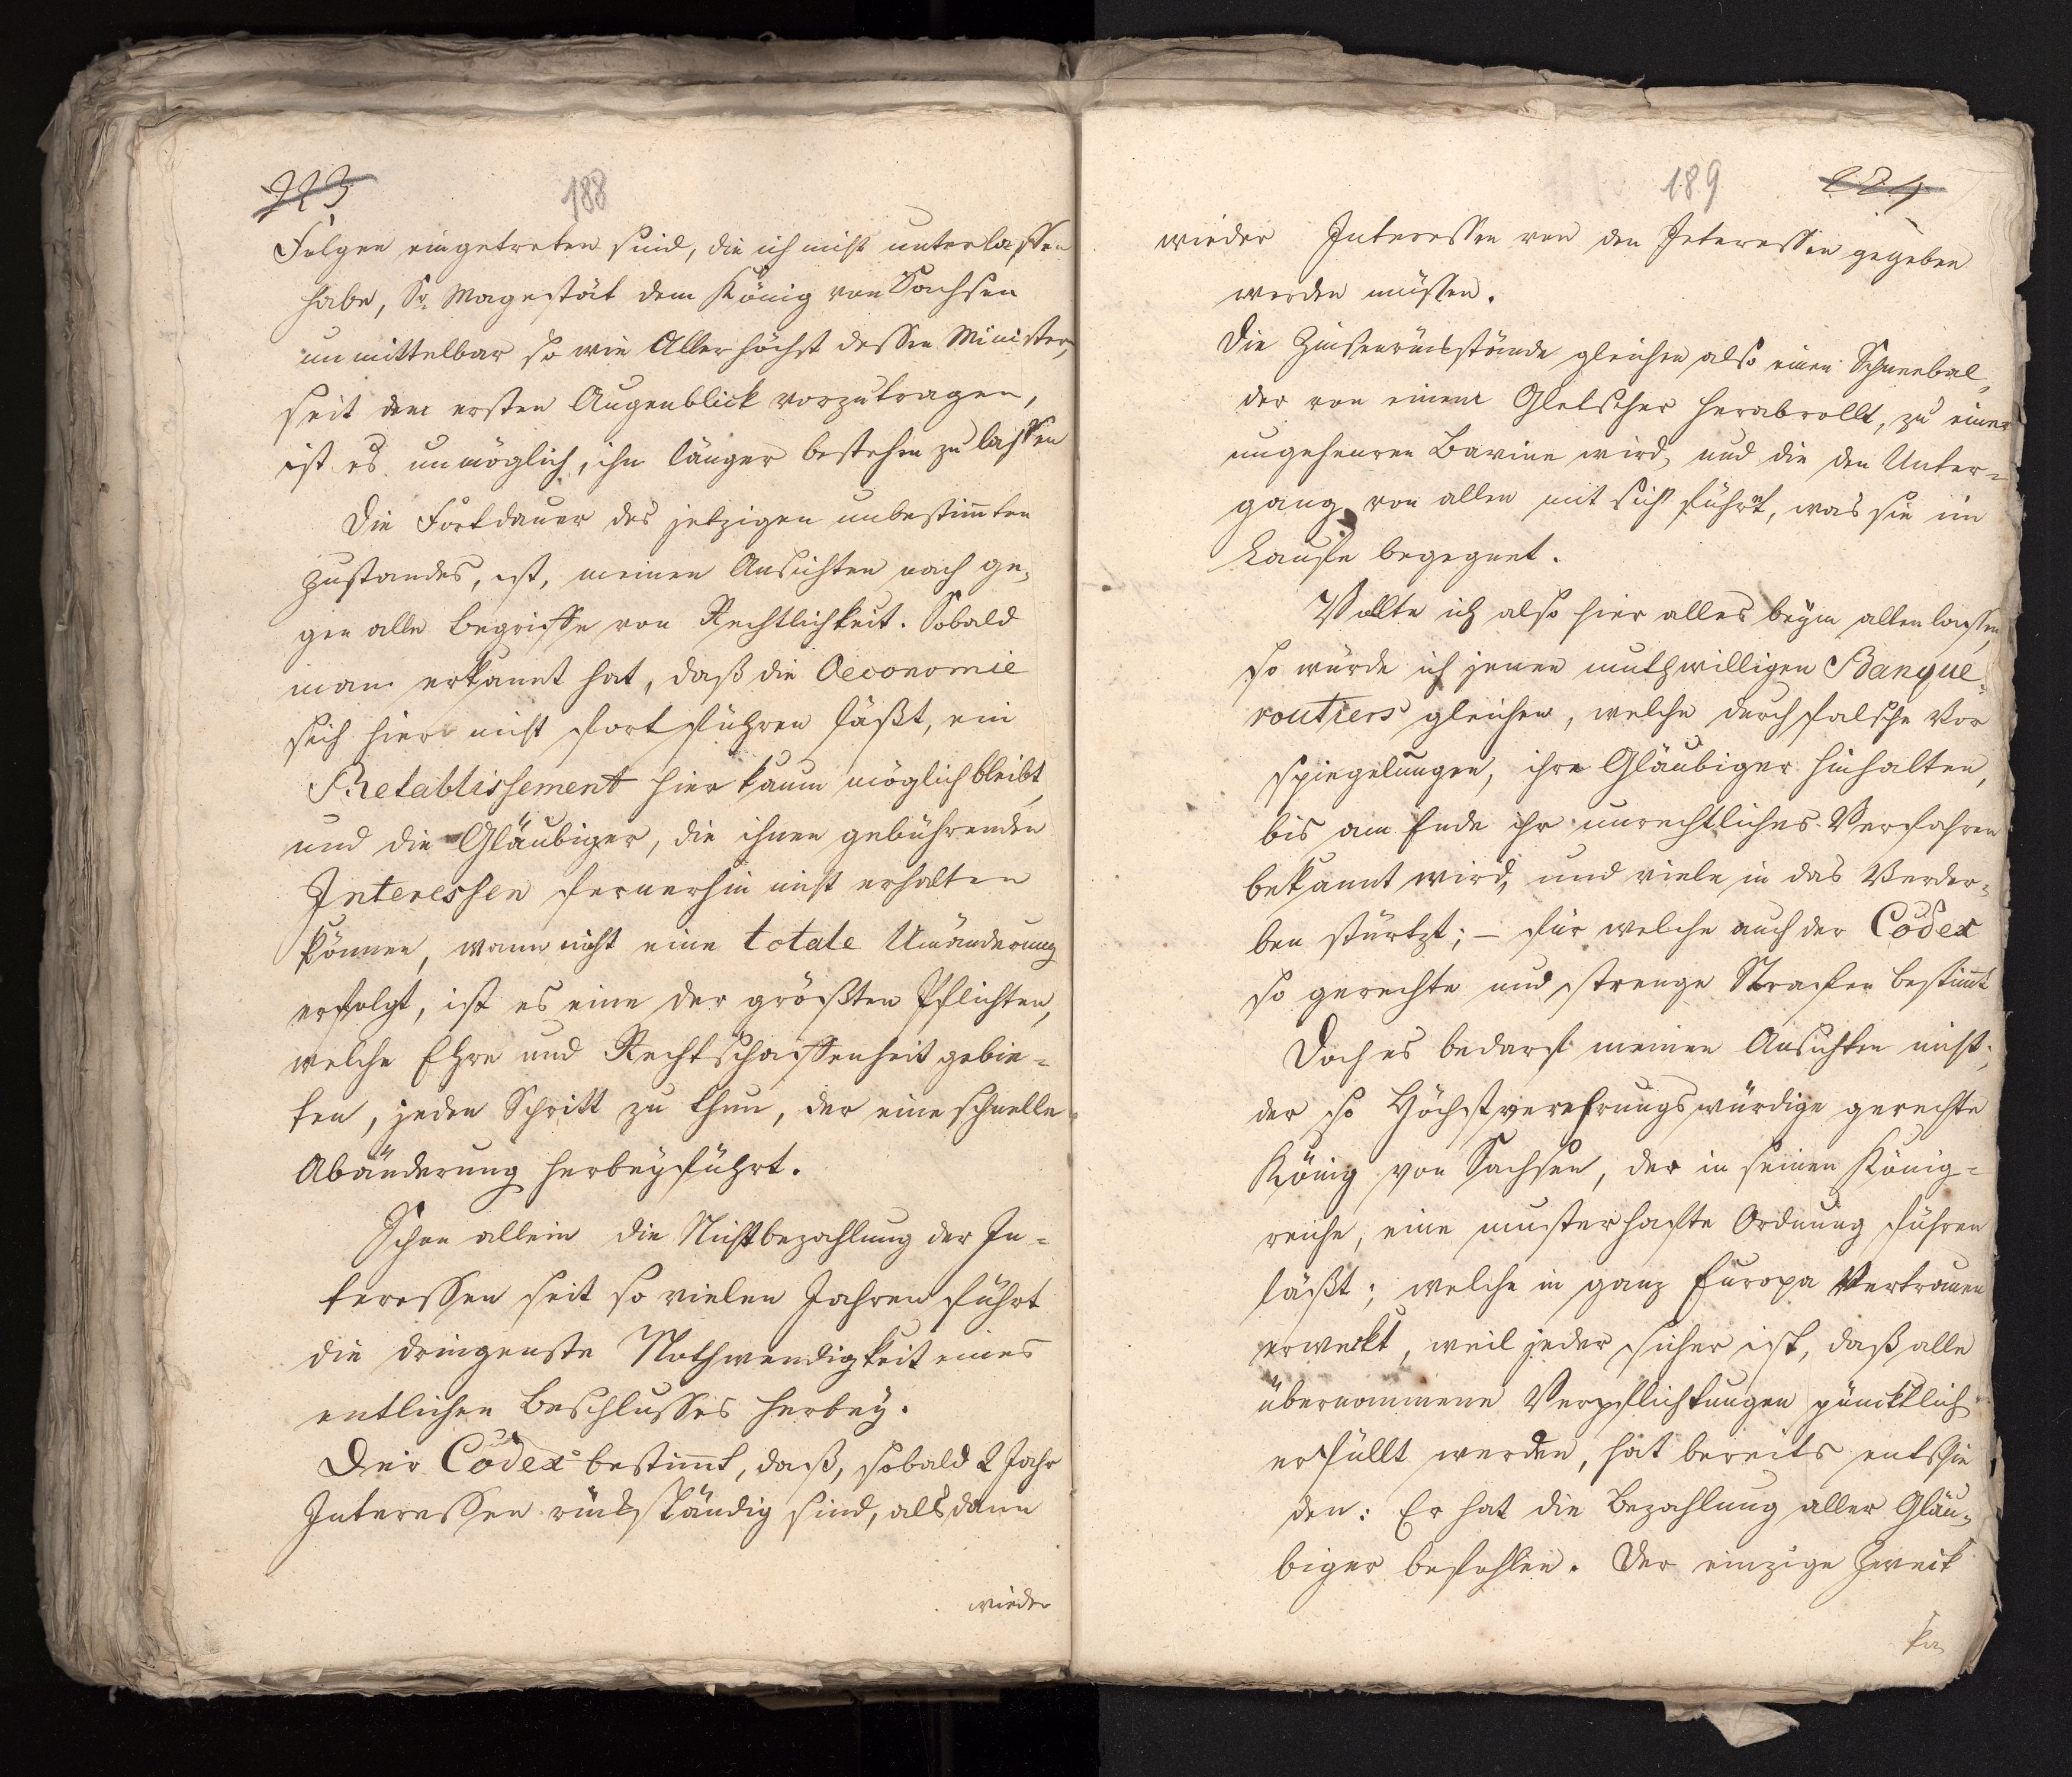 223
188
Folgen eingetreten sind, die ich nicht unterlassen
habe, Sr. Magestät dem König von Sachsen
unmittelbar so wie Allerhöchst dessen Minister,
seit dem ersten Augenblick vorzutragen,
ist es unmöglich, ihn länger bestehen zu lassen
Die Fortdauer des jetzigen unbestimten
Zustandes, ist, meinen Ansichten nach ge-
gen alle Begriffe von Rechtlichkeit. Sobald
man erkannt hat, daß die Oeconomie
sich hier nicht fortführen läßt, ein
Retablissement hier kaum möglich bleibt,
und die Gläubiger, die ihnen gebührenden
Interessen fernerhin nicht erhalten
können, wann nicht eine totale Umänderung
erfolgt, ist es eine der größten Pflichten,
welche Ehre und Rechtschaffenheit gebie-
ten, jeden Schritt zu thun, der eine schnelle
Abänderung herbeyführt.
Schon allein die Nichtbezahlung der In-
teressen seit so vielen Jahren führt
die dringenste Nothwendigkeit eines
entlichen Beschlusses herbey.
Der Codex bestimt, daß, sobald 2 Jahr
Interessen rückständig sind, alsdann
wieder
189
224
wieder Interessen von den Interessen gegeben
werden müssen.
Die Zinsenrückstände gleichen also einen Schneebal,
der von einem Gletscher herabrollt, zu einer
ungeheuren Lavine wird, und die den Unter-
gang von allen mit sich führt, was sie im
Laufe begegnet.
Wollte ich also hier alles beym alten lassen,
so würde ich jenen muthwilligen Banque-
routiers gleichen, welche durch falsche Vor
spiegelungen, ihre Gläubiger hinhalten,
bis am Ende ihr unrechtliches Verfahren
bekannt wird, und viele in das Verder-
ben stürtzt; – für welche auch der Codex
so gerechte und strenge Strafen bestimt
Doch es bedarf meinen Ansichten nicht;
der so Höchstverehrungswürdige gerechte
König von Sachsen, der in seinen König-
reiche, eine musterhafte Ordnung führen
läßt; welche in ganz Europa Vertrauen
erweckt, weil jeder sicher ist, daß alle
übernommene Verpflichtungen pünktlich
erfüllt werden, hat bereits entschie
den: Er hat die Bezahlung aller Gläu-
biger befohlen. Der einzige Zweck